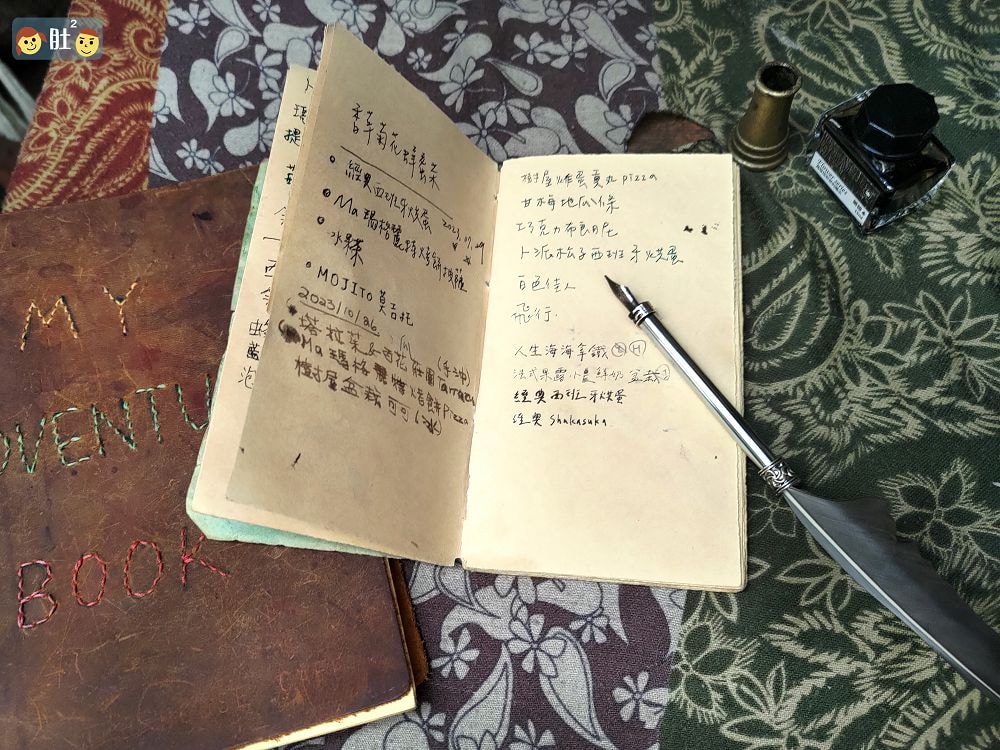 肚2
MY
ADVENTU
BOOK
香草菊花蜂蜜茶
經典西班牙烘蛋
2023.07.29
Ma瑪格麗特烤餅披薩
水果茶
MOJITO 莫吉托
2023/10/26
塔拉茱&西花莊園(手沖)
Ma瑪格麗特烤餅Pizza
樹屋盆栽可可(冰)
樹屋炸蛋賣丸pizza
甘梅地瓜條
巧克力布朗尼
卜派松子西班牙烘蛋
百色佳人
飛行.
人生海海拿鐵 H
法式果露小農鮮奶 盆栽
經典西班牙烘蛋
經典 Shakasuka